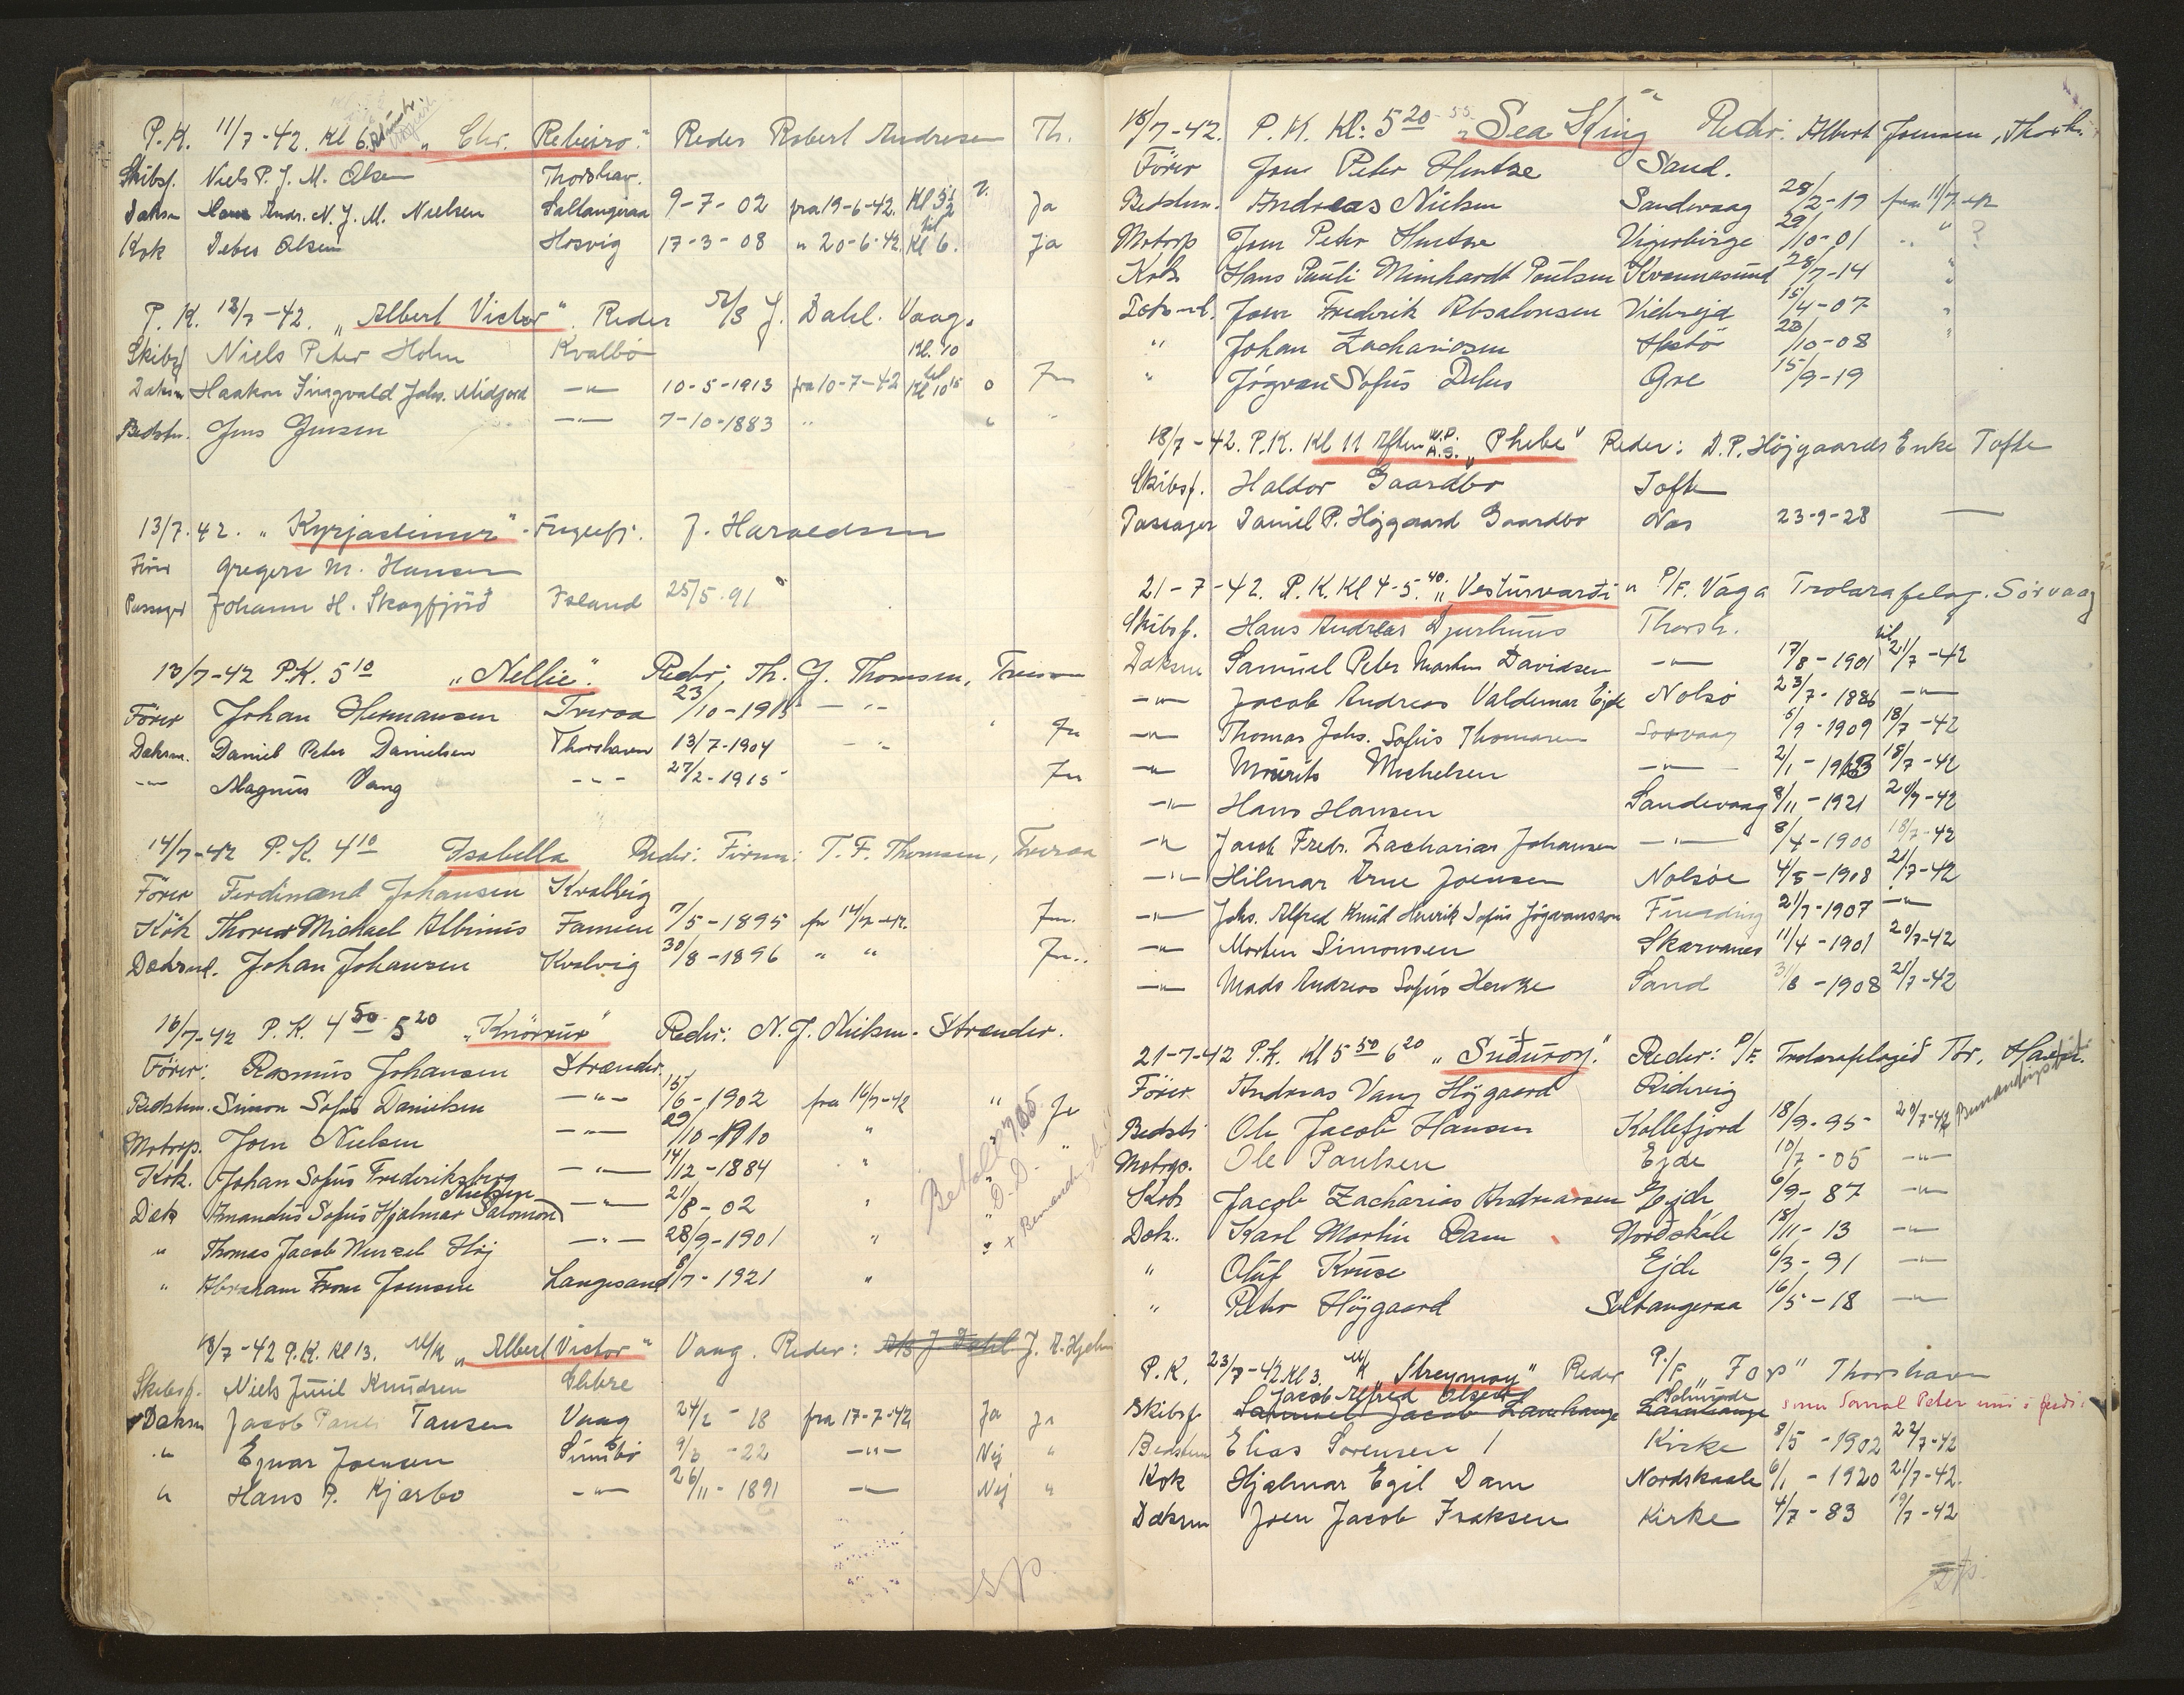 P.K. 11/7-42. Kl 6. "Chr. Rebeiro". Reder Robert Andresen Th.
Skibsf. Niels P. J. M. Olsen Thorshav.
Daksm Hans Andr. N. J. M. Nielsen Saltangeraa 9-7-02 fra 19-6-42. Kl 3½ Ja
Kok Debes Olsen Hosvig 17-3-08 " 20-6-42. til Kl 6. Ja
P.K. 12/7-42. "Albert Victor". Reder A/S J. Dahl. Vaag.
Skibsf Niels Peter Holm Kvalbø Kl. 10
Daksm Haakon Ingvald Johs. Midjord -"- 10-5-1913 fra 10-7-42 til Kl 10 15 o
Bedstm. Jens Jensen -"- 7-10-1883 "
13/7.42. "Kyrjasteinur" - Fuglefj. J. Haraldsen
Fører Gregers M. Hansen
Passager Johann H. Skagfjörð Island 25/5.91
13/7-42 P.K. 5 10 "Nellie". Reder; Th. J. Thomsen,
Fører Johan Hermansen Tveraa 23/10-1913 -"-
Daksm. Daniel Peter Danielsen Thorshavn 13/7-1904 -"-
-"- Magnus Vang -"- 27/2-1915
14/7-42 P.K. 4 10 Isabella Reder: Firma: T. F. Thomsen, Tveraa
Fører Ferdinand Johansen Kvalvig
Kok Thorvar Michael Albinus Famien 7/5-1895 fr 14/7-42.
Daksmd. Johan Johansen Kvalvig 30/8-1896 " "
16/7-42 P.K. 4 50 5 20 "Knörrur" Reder: N. J. Nielsen. Strænder.
Fører: Rasmus Johansen Strænder.
Bedstm. Simon Sofus Danielsen -"- 15/6-1902 fra 16/7-42 " Ja
Motorp. Joen Nielsen -"- 29/10-1910 " "
Kok. Johan Sofus Frederiksberg -"- 14/12-1884 "
Dæk Amandus Sofus Hjalmar Salomon Nielsen -"- 21/8-02 "
" Thomas Jacob Wenzel Høj -"- 28/9-1901 "
" Abraham From Joensen Langesand 8/7-1921 "
Betaler
D.D.
18/7-42 P.K. Kl 13. M/K "Albert Victor" Vaag. Reder: A/S J. Dahl J. A. Hjelm
Skibsf. Niels Juul Knudsen
Daksm Jacob Pauli Tausen Vaag 24/2-18 fra 17-7-42 Ja ja
" Ejnar Joensen Sumbø 9/3-22 -"- Nej "
" Hans P. Kjærbo -"- 26/11-1891 -"- Nej "
18/7-42. P.K. Kl: 5 20 - 55 "Sea King" Reder: Albert Joensen, Thorsh.
Förer Jens Peter Hentze Sand.
Bedstem. Andreas Nielsen Sandevaag 28/2-19 fra 11/7-42
Motorp Jens Peter Hentze 29/10-01 " " ?
Kok Hans Pauli Meinhardt Poulsen Kvannasund 28/7-14 "
Dæksmd. Joen Frederik Absalonsen Viderejde 15/4-07 "
" Johan Zachariasen Hestø 23/10-08 "
" Jógvan Sofus Debes Gøe 15/9-19
18/7-42. P.K. Kl 11 Aften W.P. A.S. "Phebe" Reder: D.P. Höjgaards Enke Tofte
Skibsf. Haldor Gaardbo Tofte
Passager Daniel P. Højgaard Gaardbo Næs 23-9-28 —
21-7-42. P.K. Kl 4-5. 40. "Vesturvarði" P/F. Vága Trolarafelag. Sørvaag
Skibsf. Hans Andreas Djurhuus Thorsh.
Daksm Samuel Peter Martin Davidsen -"- 17/8-1901 til 21/7-42
-"- Jacob Andreas Valdemar Ejde Nolsø 23/7-1886 -"-
-"- Thomas Johs. Sofus Thomasen Sørvaag 5/9-1909 18/7-42
-"- Mourits Michelsen -"- 2/1-1903 18/7-42
-"- Hans Hansen Sandevaag 8/11-1921 20/7-42
-"- Jacob Fredr. Zacharias Johansen -"- 8/4-1900 18/7-42
-"- Hilmar Arne Joensen Nolsøe 4/5-1908 21/7-42
-"- Johs. Alfred Knud Henrik Sofus Jógvansson Funding 21/7-1907 -"-
-"- Morten Simonsen Skarvanes 11/4-1901 20/7-42
-"- Mads Andreas Sofus Hentze Sand 31/8-1908 21/7-42
21-7-42 P.K. Kl 5 50 6 20 "Suðuroy." Reder: P/F. Trolarafelagið Tór,
Förer Andreas Vang Höjgaard Ridevig
Bedst: Ole Jacob Hansen Kollefjord 18/9-95- 20/7-42
Motorps. Ole Paulsen Ejde 10/7-05 -"-
Kok Jacob Zacharias Andreasen Ejde 6/9-87 -"-
Dæk. Karl Martin Dam Norðskále 18/11-13 -"-
" Oluf Kruse Ejde 6/3-91 -"-
" Peter Höjgaard Saltangeraa 16/5-18 -"-
P.K. 23/7-42. Kl 3. M/K "Streymoy" Reder P/F "Før" Thorshavn
Jacob Alfred Olsen
Skibsf. Samuel Jacob
Bedstem Elias Sørensen Kirke 8/5-1902 22/7-42
Kok Hjalmar Egil Dam Nordskaale 6/1-1920 21/7-42.
Daksm Joen Jacob Isaksen Kirke 4/7-83 19/7-42